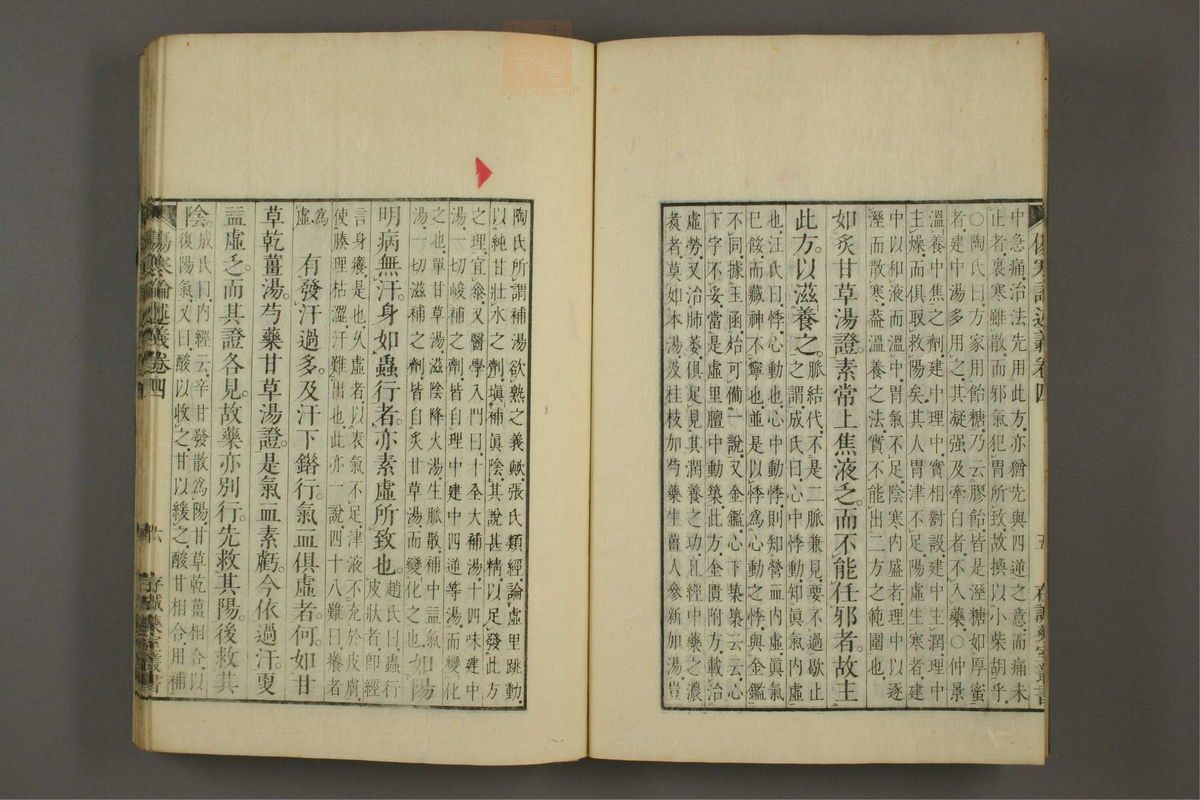 傷寒論述義卷四
五
存誠藥室叢書
中急痛治法先用此方亦猶先與四逆之意而痛未
止者裏寒雖散而邪氣犯胃所致故換以小柴胡乎
○陶氏曰方家用飴糖乃云膠飴皆是溼糖如厚蜜
者建中湯多用之其凝强及牽白者不入藥○仲景
溫養中焦之劑建中理中實相對設建中主潤理中
主燥而俱取救陽矣其人胃津不足陽虛生寒者建
中以和液而溫中胃氣不足陰寒內盛者理中以逐
溼而散寒葢溫養之法實不能出二方之範圍也
如炙甘草湯證素常上焦液乏而不能任邪者故主
此方以滋養之
脈結代不是二脈兼見要不過歇止
之謂成氏曰心中悸動知眞氣內虛
也汪氏曰悸心動也心中動悸則知營血內虛眞氣
巳餒而藏神不寧也並是以悸爲心動之悸與金鑑
不同據玉函始可備一說又金鑑心下築築云云心
下字不妥當是虛里膻中動築此方金匱附方載治
虛勞又治肺萎俱足見其潤養之功且經中藥之濃
煑者莫如本湯及桂枝加芍藥生薑人參新加湯豈
陶氏所謂補湯欲熟之義歟張氏類經論虛里跳動
以純甘壯水之劑塡補眞陰其說甚精以足發此方
之理宜叅又醫學入門曰十全大補湯十四味建中
湯一切峻補之劑皆自理中建中四逆等湯而變化
之也單甘草湯滋陰降火湯生脈散補中益氣
湯一切滋補之劑皆自炙甘草湯而變化之也如陽
明病無汗身如蟲行者亦素虛所致也
趙氏曰蟲行
皮狀者卽經
言身癢是也久虛者以表氣不足津液不充於皮膚
使腠理枯澀汗難出也此亦一說四十八難曰癢者
爲
虛
有發汗過多及汗下錯行氣血俱虛者何如甘
草乾薑湯芍藥甘草湯證是氣血素虧今依過汗更
益虛之而其證各見故藥亦別行先救其陽後救其
陰
成氏曰內經云辛甘發散爲陽甘草乾薑相合以
復陽氣又曰酸以收之甘以緩之酸甘相合用補
傷寒論述義卷四
六
存誠藥室叢書